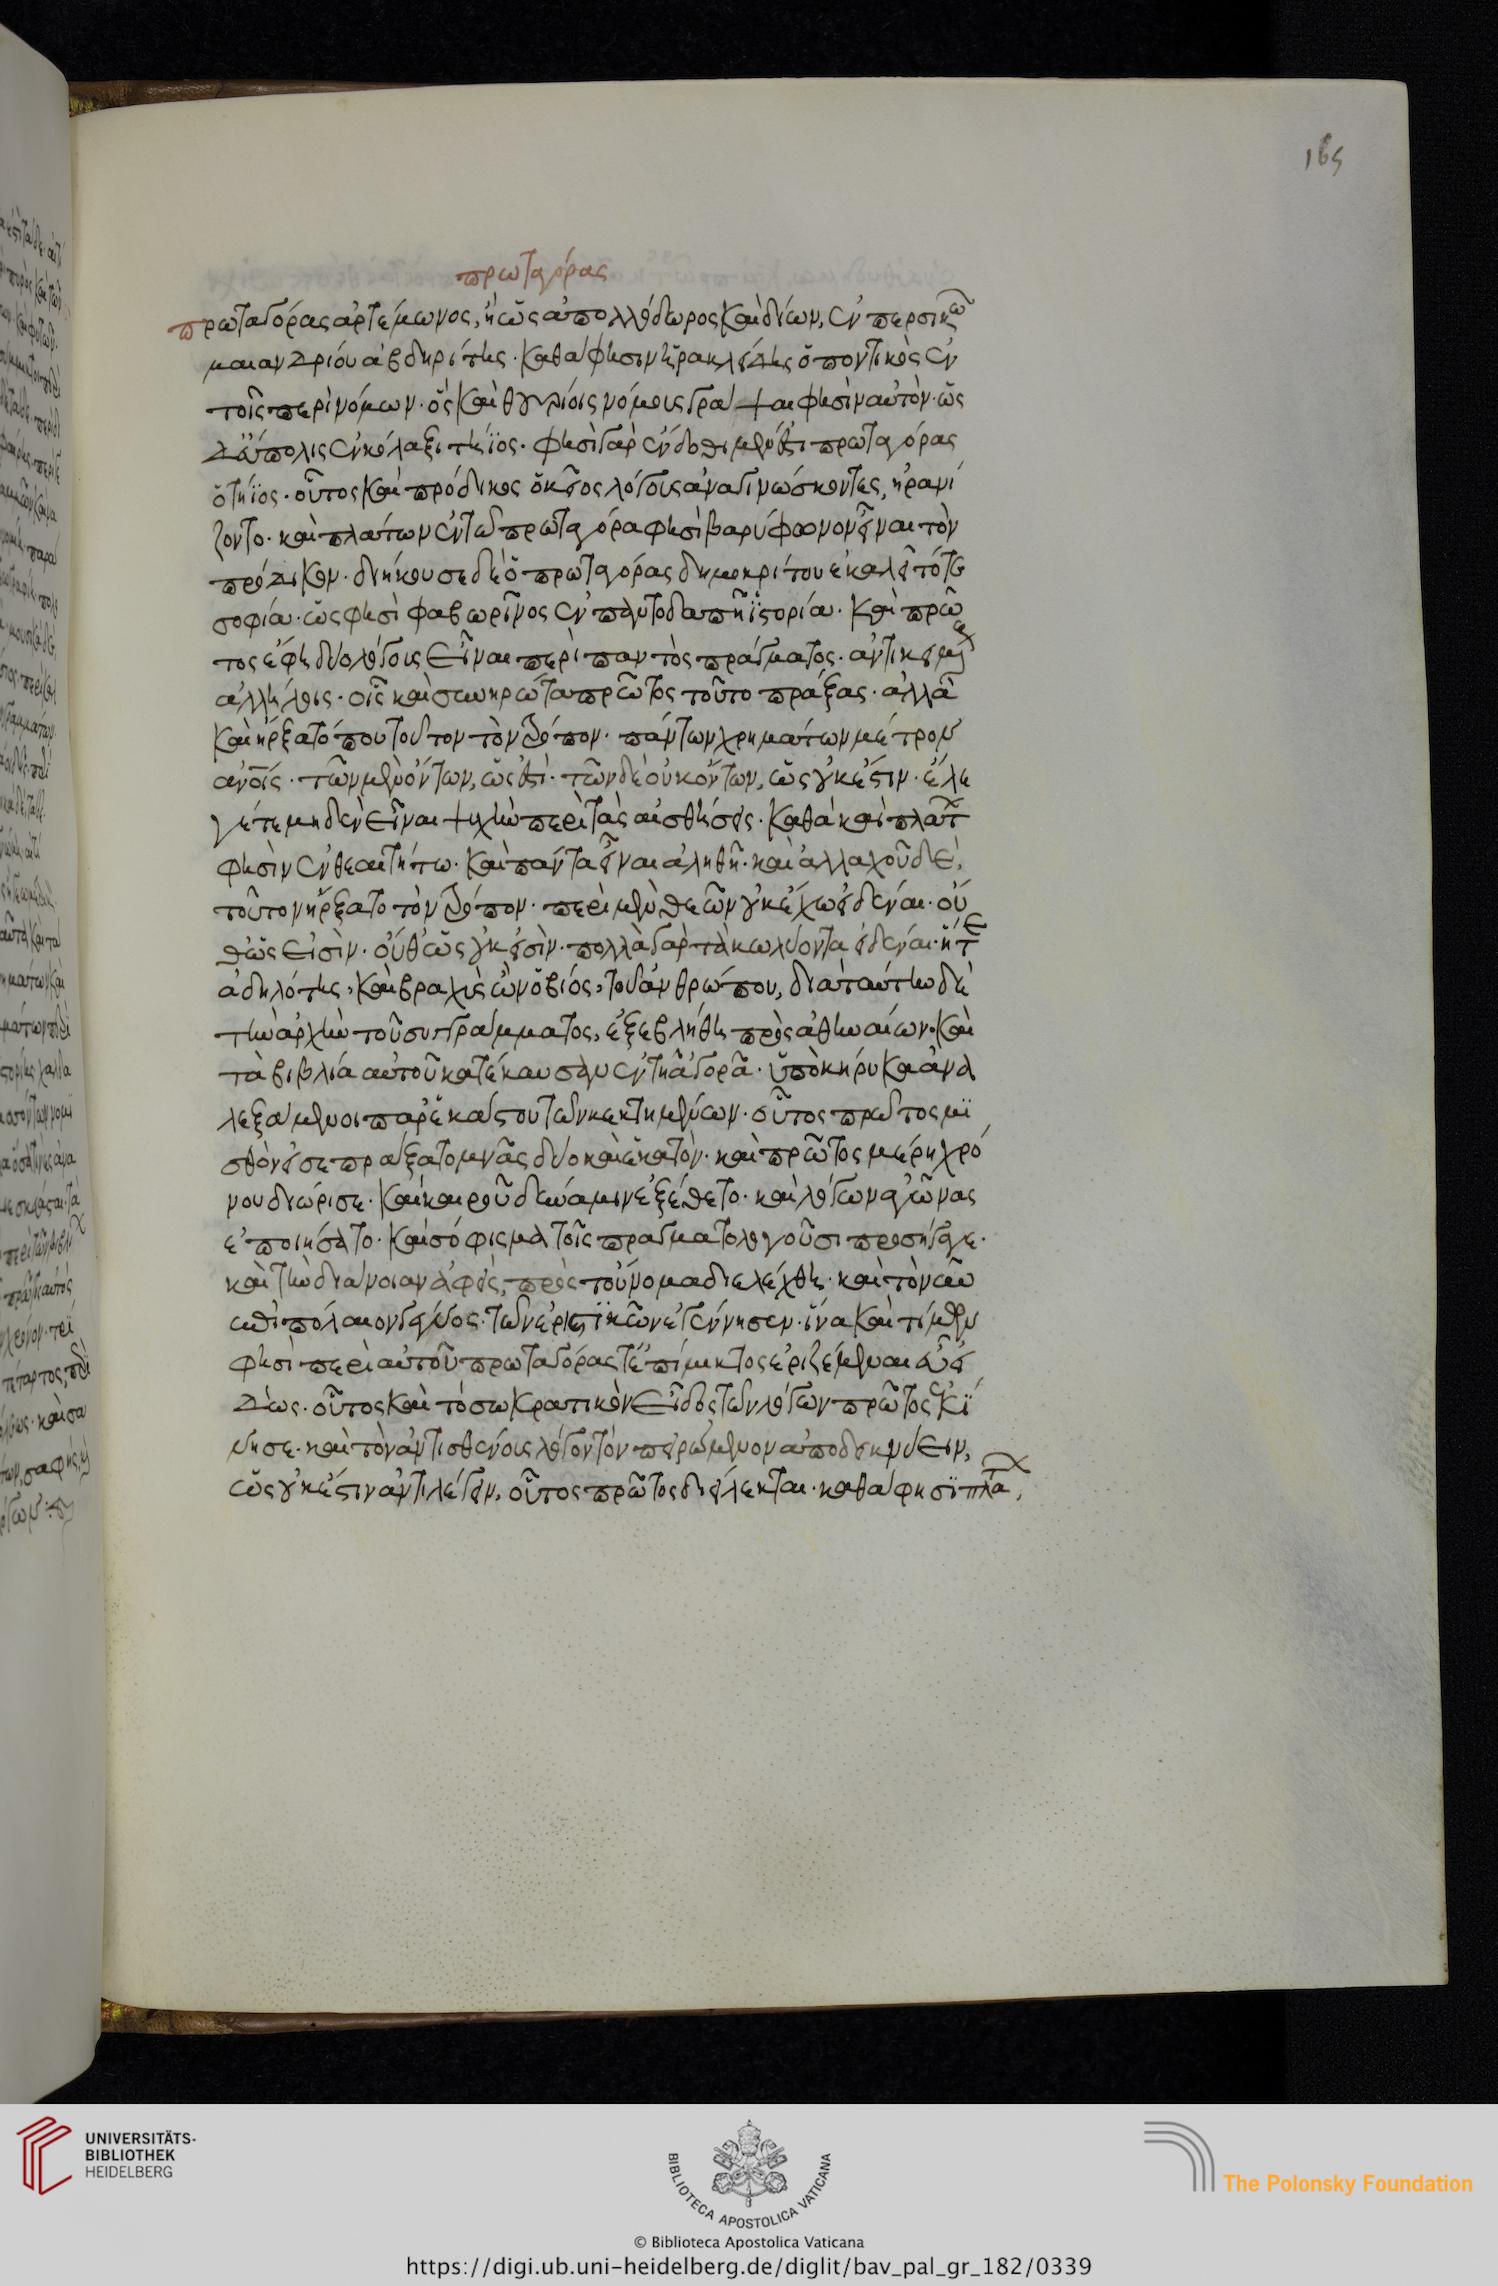 165
πρωταγόρας
πρωταγόρας ἀρτέμωνος, ἢ ὡς ἀπολλόδωρος καὶ δίων, ἐν περσικῶ
μαιανδρίου ἀβδηρίτης· καθά φησιν ἡρακλείδης ὁ ποντικὸς ἐν
τοῖς περὶ νόμων· ὃς καὶ θουρίοις νόμους γράψαι φησὶν αὐτὸν· ὡς
δ' εὔπολις ἐν κόλαξι τήϊος· φησὶ γὰρ ἔνδοθι μέν ἐστι πρωταγόρας
ὁ τήϊος· οὗτος καὶ πρόδικος ὁ κεῖος λόγους ἀναγινώσκοντες, ἠρανί
ζοντο· καὶ πλάτων ἐν τῶ πρωταγόρα φησὶ βαρύφωνον εἶναι τὸν
πρόδικον· διήκουσε δὲ ὁ πρωταγόρας δημοκρίτου ἐκαλεῖτό τε
σοφία· ὥς φησὶ φαβωρῖνος ἐν παντοδαπῆ ἱστορία· καὶ πρῶ
τος ἔφη δύο λόγους εἶναι περὶ παντὸς πράγματος· ἀντικειμ
ἀλλήλοις· οἷς καὶ σωκρώτα πρῶτος τοῦτο πράξας· ἀλλὰ
καὶ ἤρξατό που τοῦτον τὸν τρόπον· πάντων χρημάτων μέτρον
ἀνος· τῶν μὲν ὄντων, ὡς ἐστί· τῶν δὲ οὐκ ὄντων, ὡς οὐκ ἔστιν· ἔλε
γέ τε μηδὲν εἶναι ψυχὴν περὶ τὰς αἰσθήσεις· καθὰ καὶ πλάτ
φησὶν ἐν θεαιτήτω· καὶ πάντα εἶναι ἀληθῆ· καὶ ἀλλαχοῦ δὲ,
τοῦτον ἤρξατο τὸν τρόπον· περὶ μὲν θεῶν οὐκ ἔχω εἰδέναι· οὔ
θ' ὡς εἰσὶν· οὔθ' ὡς οὐκ εἰσὶν· πολλὰ γὰρ τὰ κωλύοντα εἰδέναι· ἥ τε
ἀδηλότης, καὶ βραχὺς ὢν ὁ βίος, τοῦ ἀνθρώπου, διὰ ταύτην δὲ
τὴν ἀρχὴν τοῦ συγγράμματος, ἐξεβλήθη πρὸς ἀθηναίων· καὶ
τὰ βιβλία αὐτοῦ κατέκαυσαν ἐν τῆ ἀγορᾶ· ὑπὸ κήρυκα ἀνα
λεξάμενοι παρ' ἑκάστου τῶν κεκτημένων· οὗτος πρῶτος μι
σθὸν εἰσεπράξατο μνᾶς δύο καὶ ἑκατὸν· καὶ πρῶτος μέρη χρό
νου διώρισε· καὶ καιροῦ δύναμιν ἐξέθετο· καὶ λόγων ἀγῶνας
ἐποιήσατο· καὶ σόφισμα τοῖς πραγματολογοῦσι προσήγαγε·
καὶ τὴν διάνοιαν ἀφεὶς, πρὸς τοὔνομα διελέχθη· καὶ τὸν νῦν
ἐπιπόλαιον γένος τῶν ἐριστικῶν ἐγέννησεν· ἵνα καὶ τίμων
φησὶ περὶ αὐτοῦ πρωταγόρας τ' ἐπίμικτος ἐριζέμεναι εὖ εἰ
δώς· οὗτος καὶ τό σωκρατικὸν εἶδος τῶν λόγων πρῶτος ἐκί
νησε· καὶ τὸν ἀντισθένους λόγον τὸν πειρώμενον ἀποδεικνύειν,
ὡς οὐκ ἔστιν ἀντιλέγειν, οὗτος πρῶτος διείλεκται· καθά φησὶ πλα,
UNIVERSITÄTS-
BIBLIOTHEK
HEIDELBERG
BIBLIOTECA APOSTOLICA VATICANA
The Polonsky Foundation
© Biblioteca Apostolica Vaticana
https://digi.ub.uni-heidelberg.de/diglit/bav_pal_gr_182/0339